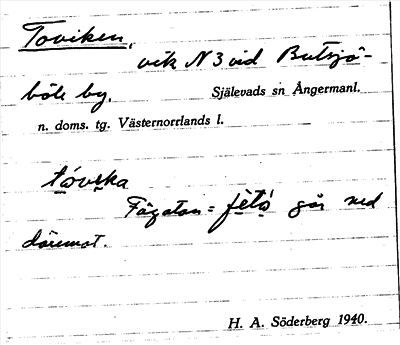 Toviken,
vik N 3 vid Butsjö-
böle by.
Själevads sn Ångermanl.
n. doms. tg. Västernorrlands l.
tóvika
Fägatan = fètó går ned
däremot.
H. A. Söderberg 1940.